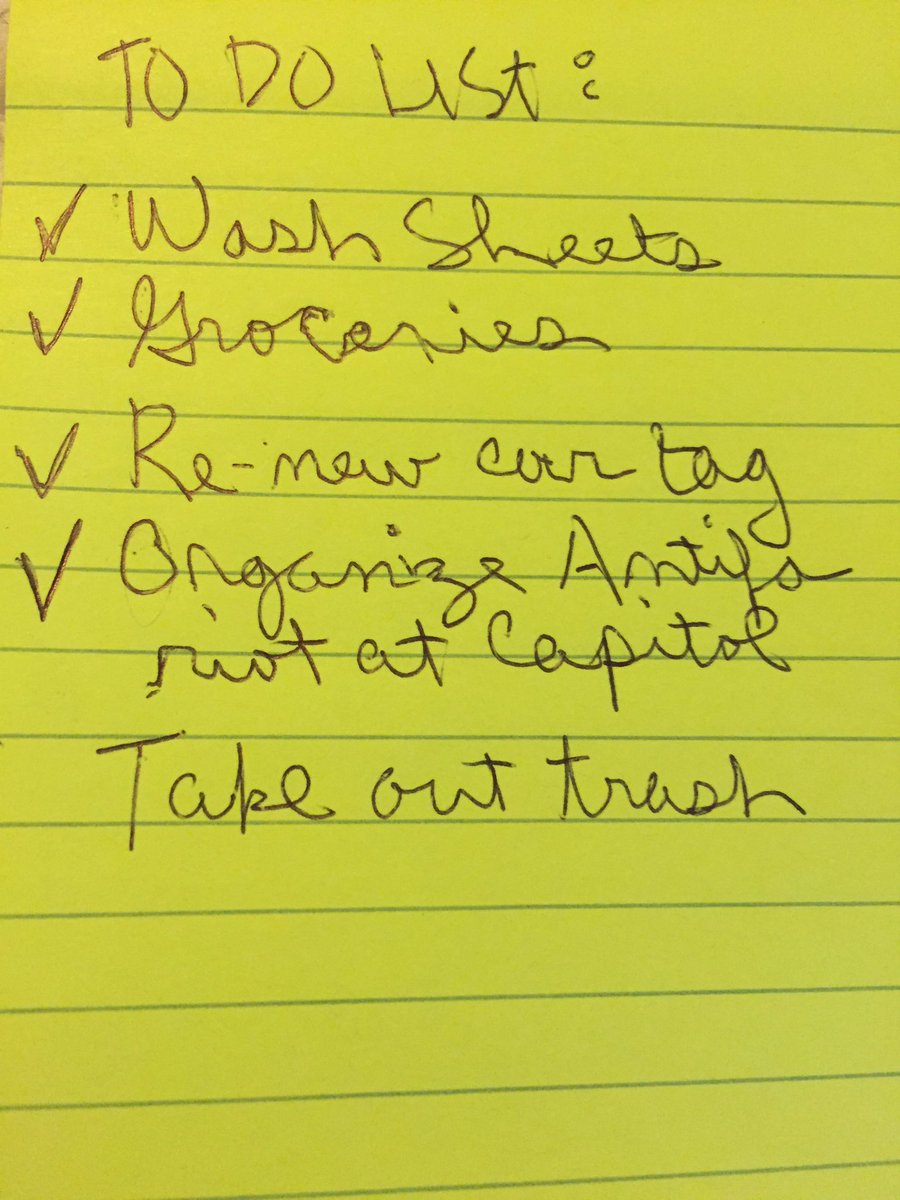 TO DO LIST:
✓ Wash Sheets
✓ Groceries
✓ Re-new car tag
✓ Organize Antifa
riot at Capitol
Take out trash